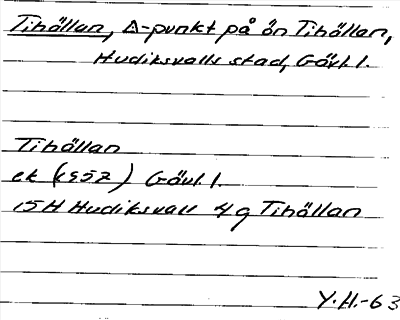 Tihällan, Δ-punkt på ön Tihällan,
Hudiksvalls stad, Gävl. l.
Tihällan
ek (1957) Gävl. l.
15H Hudiksvall 4g Tihällan
Y.H.-63